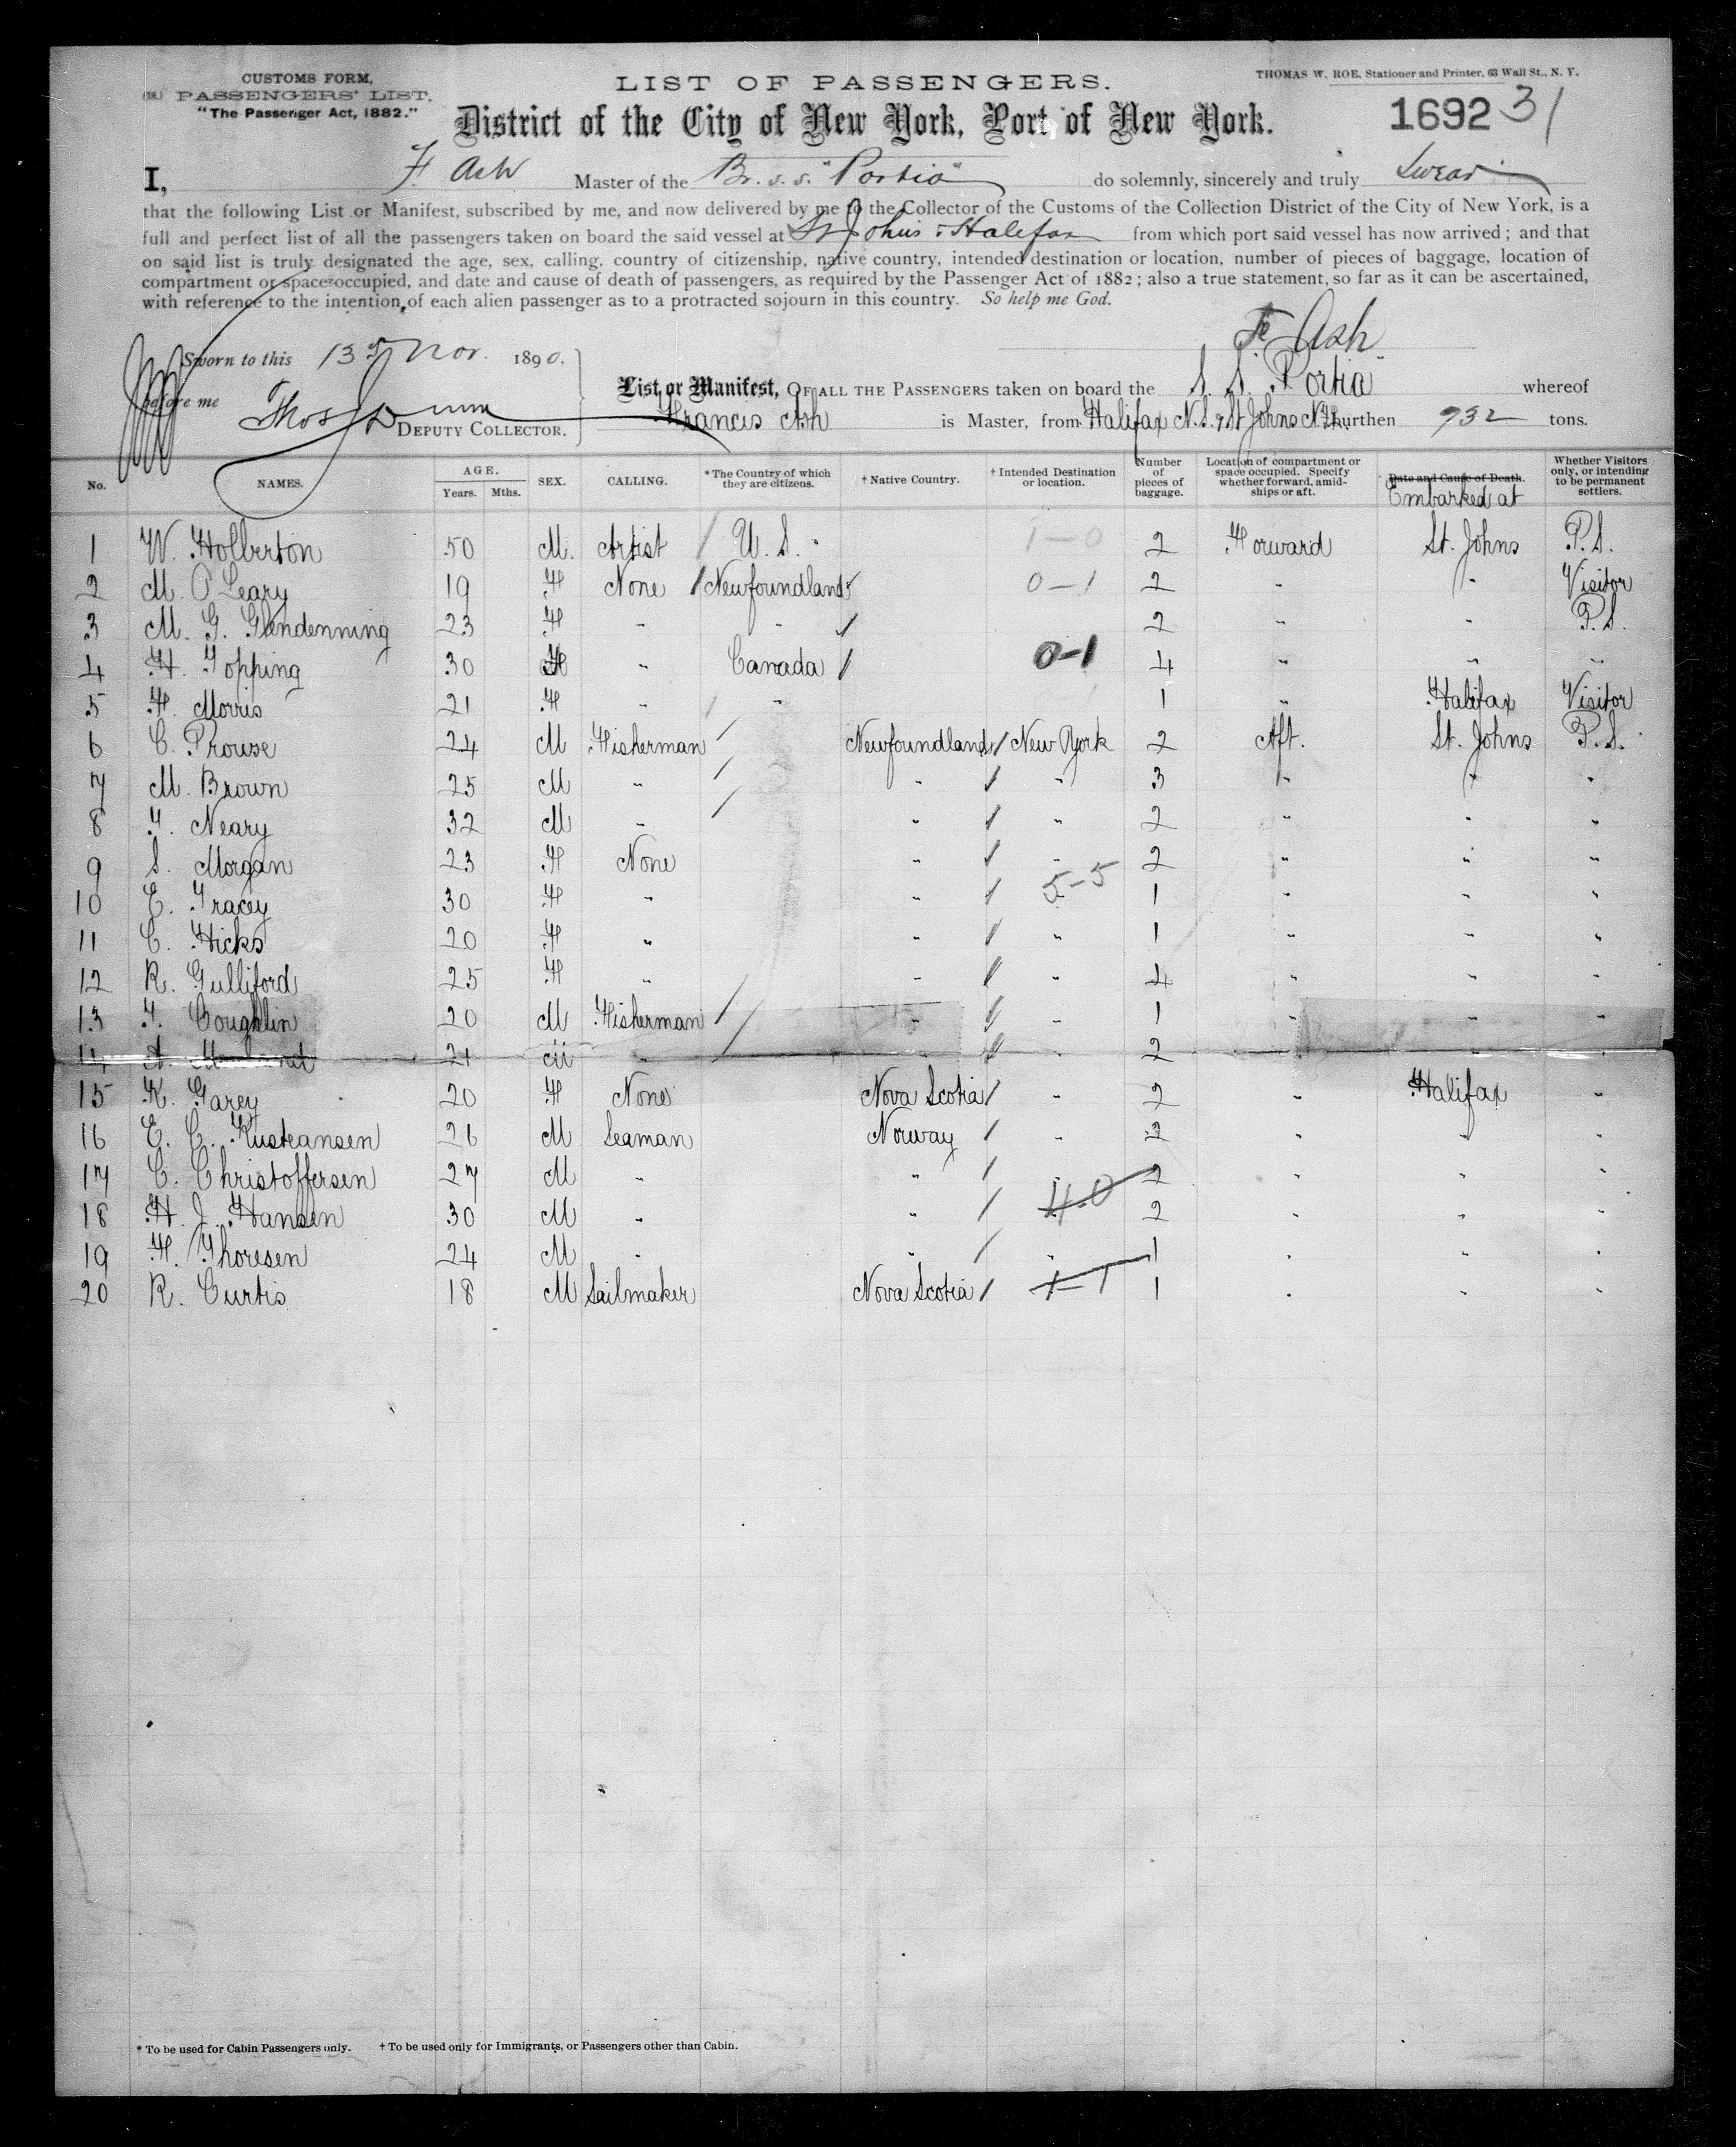 CUSTOMS FORM,
PASSENGERS' LIST,
"The Passenger Act, 1882."
LIST OF PASSENGERS.
THOMAS W. ROE, Stationer and Printer, 63 Wall St., N. Y.
District of the City of New York, Port of New York.
1692 31
I, F. Ash Master of the Br. s.s. "Portia" do solemnly, sincerely and truly Swear
that the following List or Manifest, subscribed by me, and now delivered by me to the Collector of the Customs of the Collection District of the City of New York, is a
full and perfect list of all the passengers taken on board the said vessel at St Johns & Halifax from which port said vessel has now arrived; and that
on said list is truly designated the age, sex, calling, country of citizenship, native country, intended destination or location, number of pieces of baggage, location of
compartment or space occupied, and date and cause of death of passengers, as required by the Passenger Act of 1882; also a true statement, so far as it can be ascertained,
with reference to the intention of each alien passenger as to a protracted sojourn in this country. So help me God.
F. Ash
Sworn to this 13 Nov. 1890.
before me Thos Dunn
DEPUTY COLLECTOR.
List or Manifest, OF ALL THE PASSENGERS taken on board the S. S. Portia whereof
Francis Ash is Master, from Halifax N.S. & St Johns Nfld. burthen 932 tons.
No. NAMES. AGE. Years. Mths. SEX. CALLING. *The Country of which they are citizens. † Native Country. † Intended Destination or location. Number of pieces of baggage. Location of compartment or space occupied. Specify whether forward, amidships or aft. Date and Cause of Death. Embarked at Whether Visitors only, or intending to be permanent settlers.
1 W. Holberton 50 M. Artist / U. S. 1-0 2 Forward St. Johns P. S.
2 M. O'Leary 19 F None / Newfoundland 0-1 2 " " Visitor
3 M. G. Glendenning 23 F " " / 2 " " P. S.
4 H. Topping 30 F " Canada / 0-1 4 " " "
5 F. Morris 21 F " / " 1 " Halifax Visitor
6 C. Prouse 24 M Fisherman / Newfoundland / New York 2 Aft. St. Johns P. S.
7 M. Brown 25 M " / " / " 3 " " "
8 T. Neary 32 M " / " / " 2 " " "
9 S. Morgan 23 F None " / " 2 " " "
10 E. Tracey 30 F " " / 5-5 1 " " "
11 C. Hicks 20 F " " / " 1 " " "
12 R. Gulliford 25 F " " / " 4 " " "
13 T. Coughlin 20 M Fisherman / " / " 1 " " "
14 A. 21 M " / " / " 2 "
15 K. Garey 20 F None Nova Scotia / " 2 " Halifax "
16 E. C. Kusteansen 26 M Seaman Norway / " 2 " " "
17 C. Christoffersen 27 M " " / " 2 " " "
18 H. J. Hansen 30 M " " / 4-0 2 " " "
19 F. Thoresen 24 M " " / " 1 " " "
20 R. Curtis 18 M Sailmaker Nova Scotia / 1-1 1 " " "
* To be used for Cabin Passengers only. † To be used only for Immigrants, or Passengers other than Cabin.